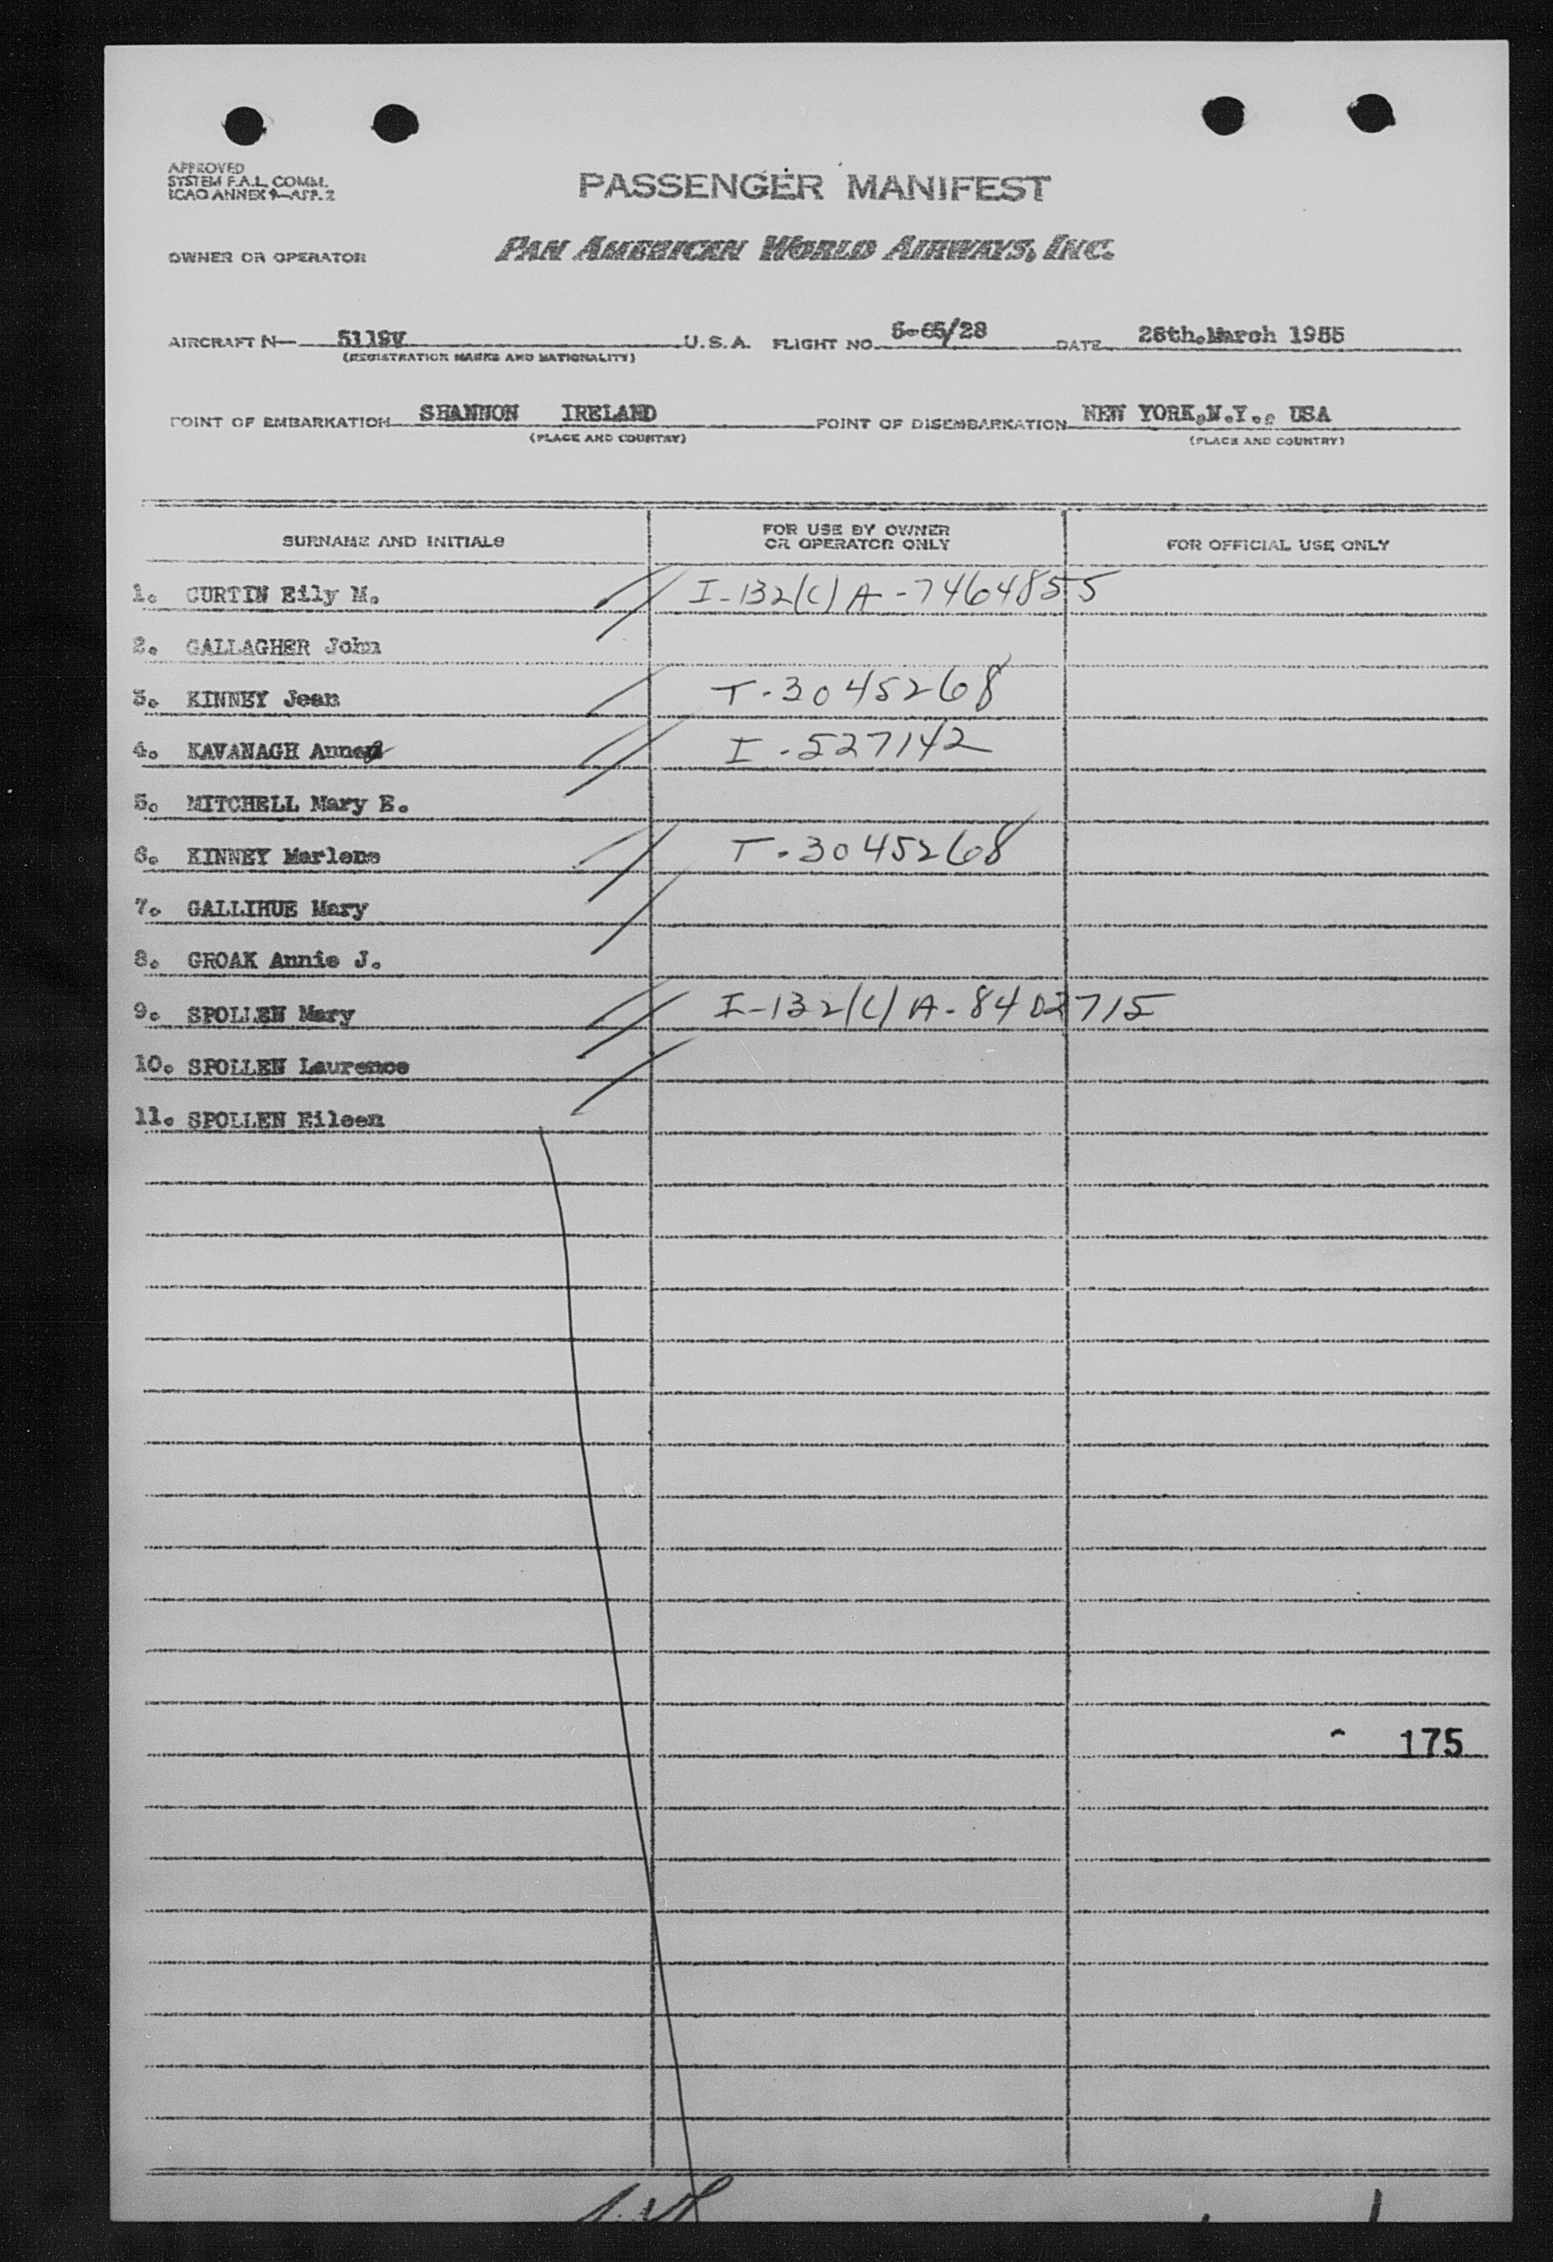 APPROVED
SYSTEM F.A.L. COMM.
ICAO ANNEX 9—APP. 2
PASSENGER MANIFEST
OWNER OR OPERATOR PAN AMERICAN WORLD AIRWAYS, INC.
AIRCRAFT N— 5119V U.S.A. FLIGHT NO. 6-65/28 DATE 28th.March 1955
(REGISTRATION MARKS AND NATIONALITY)
POINT OF EMBARKATION SHANNON IRELAND POINT OF DISEMBARKATION NEW YORK,N.Y., USA
(PLACE AND COUNTRY) (PLACE AND COUNTRY)
SURNAME AND INITIALS FOR USE BY OWNER OR OPERATOR ONLY FOR OFFICIAL USE ONLY
1. CURTIN Eily M. I-132(C) A-7464855
2. GALLAGHER John
3. KINNEY Jean T-3045268
4. KAVANAGH Anne I-527142
5. MITCHELL Mary E.
6. KINNEY Marlene T-3045268
7. GALLIHUE Mary
8. GROAK Annie J.
9. SPOLLEN Mary I-132(C) A-8402715
10. SPOLLEN Laurence
11. SPOLLEN Eileen
175